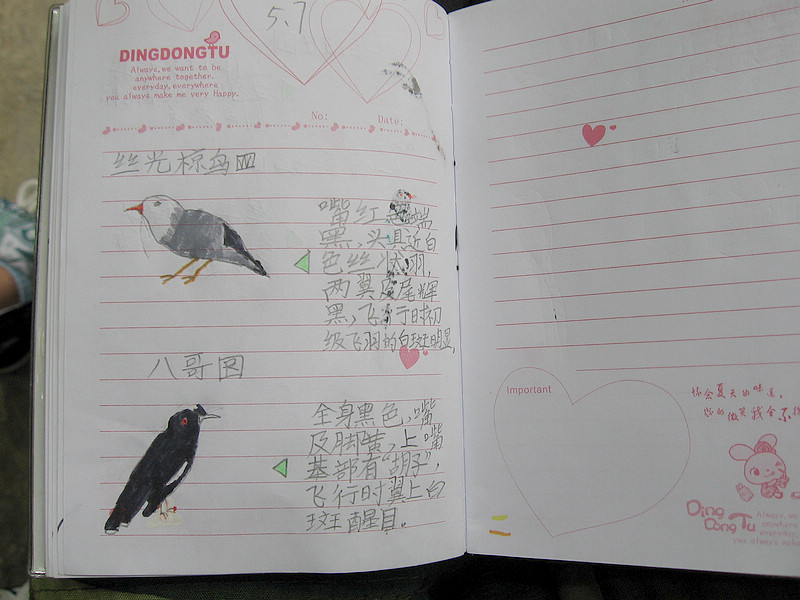 5.7
DINGDONGTU
Always, we want to be
anywhere together.
everyday, everywhere
you always make me very Happy.
No:
Date:
丝光椋鸟
嘴红
端
黑,头具近白
色丝状羽,
两翼及尾辉
黑,飞行时初
级飞羽的白斑明显
八哥图
全身黑色,嘴
及脚黄,上嘴
基部有“胡子”,
飞行时翼上白
斑醒目。
Important
你会夏天的味道,
你的微笑我会不
Ding
Dong Tu
Always, we
anywhere
everyday,
you always make